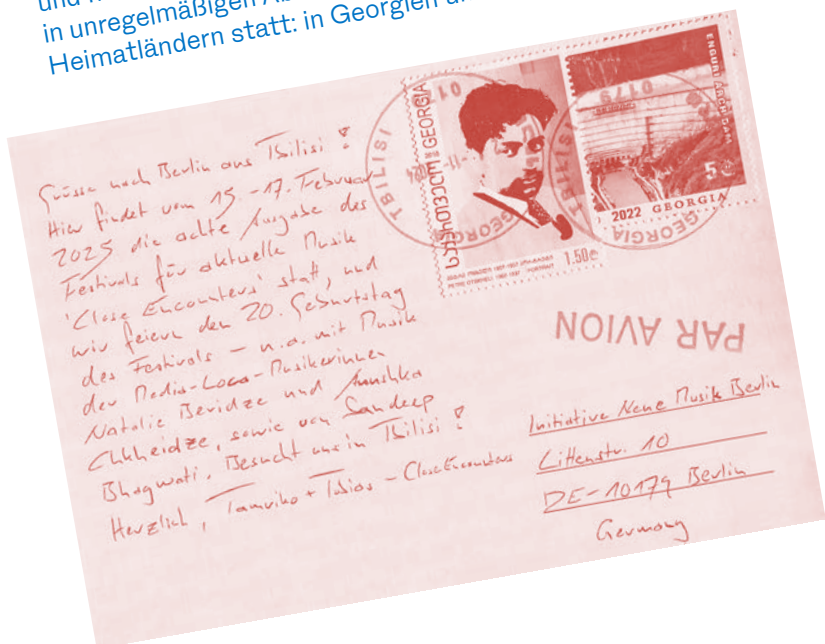 in unregelmäßigen
Heimatländern statt: in Georgien
Grüsse nach Berlin aus Tbilisi !
Hier findet vom 15.-17. Februar
2025 die achte Ausgabe des
Festivals für aktuelle Musik
'Close Encounters' statt, und
wir feiern den 20. Geburtstag
des Festivals – u.a. mit Musik
der Medio-Loca-Musikerinnen
Natalie Beridze und Anushka
Chkheidze, sowie von Sandeep
Bhagwati. Besucht uns in Tbilisi !
Herzlich, Tamriko + Tobias – Close Encounters
საქართველო GEORGIA
1.50
ENGURI ARCH DAM
5
2022 GEORGIA
TBILISI
01
GEORGIA
0175
TBILISI
GEORGIA
PAR AVION
Initiative Neue Musik Berlin
Littenstr. 10
DE-10179 Berlin
Germany